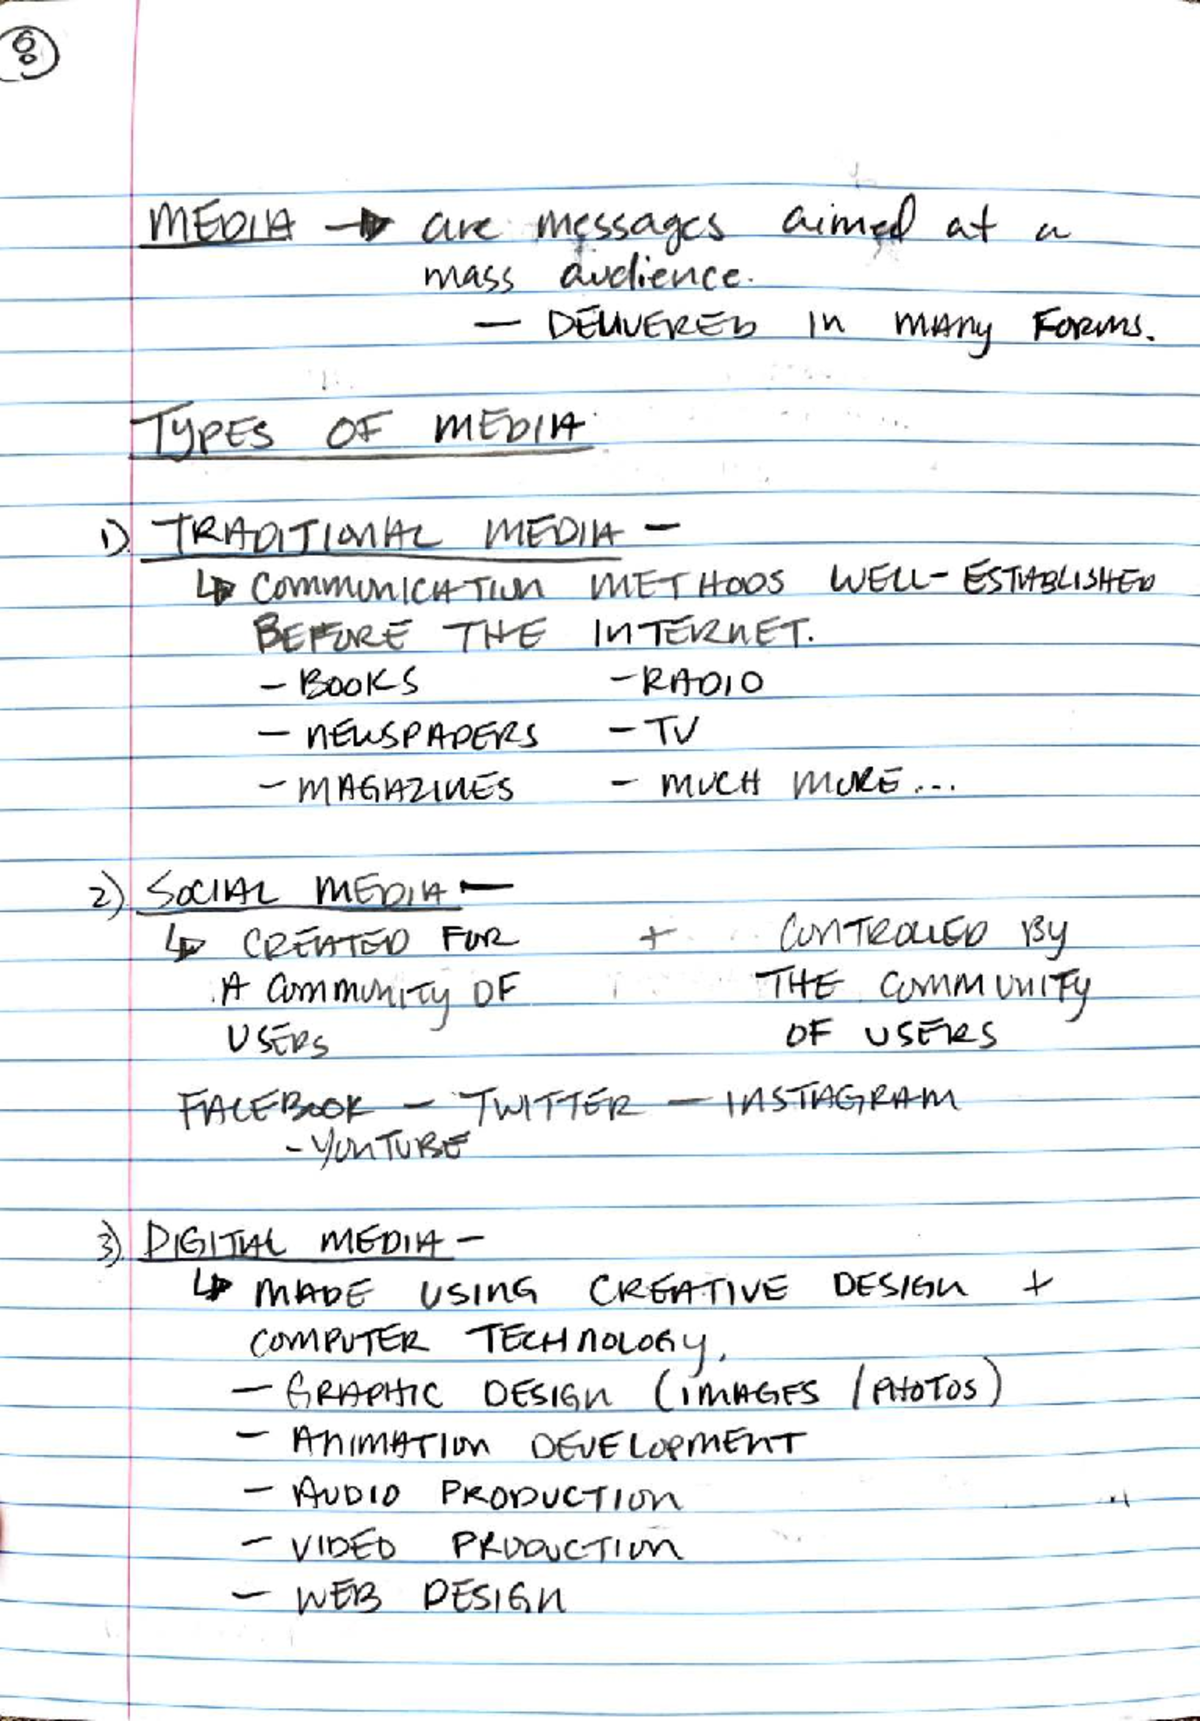 8
MEDIA → are messages aimed at a
mass audience.
— DELIVERED in mAny Forms.
TYPES OF MEDIA
1) TRADITIONAL MEDIA —
↳ COMMUNICATION METHODS WELL-ESTABLISHED
BEFORE THE INTERNET.
— BOOKS — RADIO
— NEWSPAPERS — TV
— MAGAZINES — MUCH MORE...
2) SOCIAL MEDIA —
↳ CREATED FOR + CONTROLLED By
A COMMUNITY OF THE COMMUNITY
USERS OF USERS
FACEBOOK — TWITTER — INSTAGRAM
- YOUTUBE
3) DIGITAL MEDIA —
↳ MADE USING CREATIVE DESIGN +
COMPUTER TECHNOLOGY.
— GRAPHIC DESIGN (IMAGES / PHOTOS)
— ANIMATION DEVELOPMENT
— AUDIO PRODUCTION
— VIDEO PRODUCTION
— WEB DESIGN